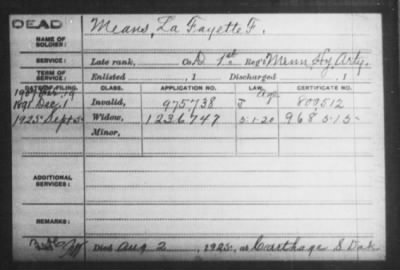 DEAD
NAME OF SOLDIER: Means, La Fayette F.
SERVICE: Late rank, Co. D 1st Reg't Minn Hy Arty.
TERM OF SERVICE: Enlisted , 1 Discharged , 1
DATE OF FILING. CLASS. APPLICATION NO. LAW. CERTIFICATE NO.
1891 Dec. 1 Invalid, 975738 Age 809512
1925 Sept 5 Widow, 1236747 5-1-20 968515
Minor,
ADDITIONAL SERVICES:
REMARKS:
Died Aug 2, 1925, at Carthage S Dak